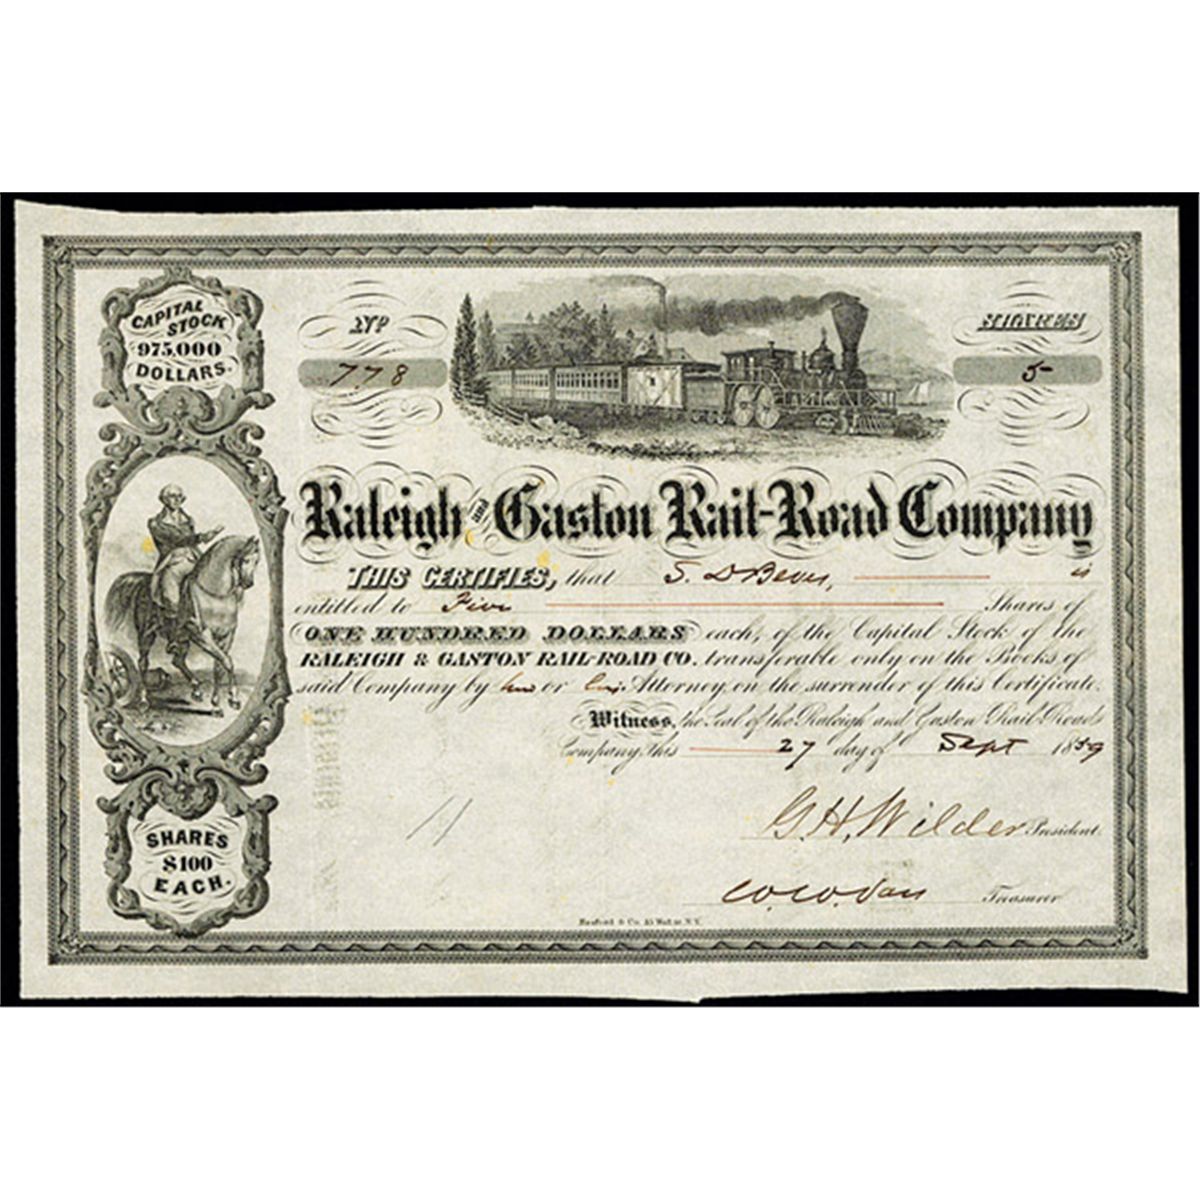 CAPITAL
STOCK
975,000
DOLLARS.
Nº
778
SHARES
5
Raleigh and Gaston Rail-Road Company
THIS CERTIFIES, that S. D is
entitled to Five Shares of
ONE HUNDRED DOLLARS each, of the Capital Stock of the
RALEIGH & GASTON RAIL-ROAD CO. transferable only on the Books of
said Company by him or his Attorney, on the surrender of this Certificate.
Witness, the Seal of the Raleigh and Gaston Rail-Road
Company, this 27 day of Sept 1859
G. H. Wilder President.
W. W. Vass Treasurer
SHARES
$100
EACH.
& Co. N.Y.